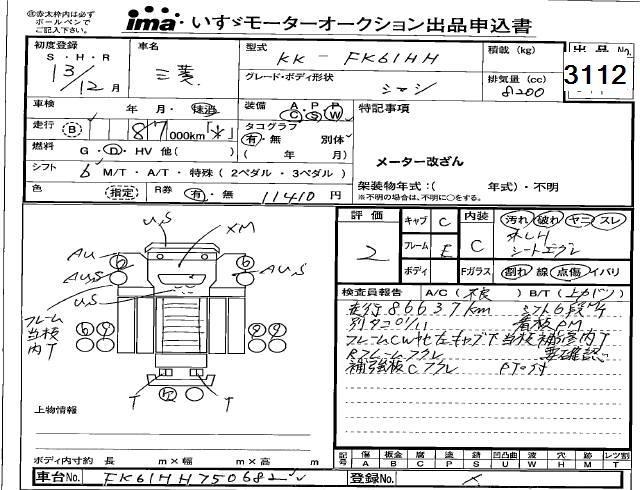 ㊟赤太枠内は必ず
ボールペンで
ご記入下さい。
ima いすゞモーターオークション出品申込書
初度登録 車名 型式 積載(kg) 出品No.
S・H・R 三菱 KK-FK61HH
13/12月 グレード・ボディ形状 シャシ 排気量(cc) 8200 3112
車検 年 月・抹消 装備 A・P・P C・S・W 特記事項
走行 B 87,000km「*」 タコグラフ 有・無 別体
燃料 G・D・HV 他( ) ( 年 月) メーター改ざん
シフト 6 M/T・A/T・特殊(2ペダル・3ペダル) 架装物年式:( 年式)・不明
色 指定 R券 有・無 11410円 ※不明の場合は、不明に○をする。
評価 2 キャブ C 内装 C 汚れ 破れ ヤニ スレ
フレーム E
ボディ Fガラス 割れ 線 点傷 イバリ
U,S
XM
AU
AUS AUS
U,S
フレーム
当板
内T
T T
検査員報告 A/C(不良) B/T(上カドツ)
走行86637km シフト6段M/T
フレームCWセ左キャブ下当板補強内T
Rフレームフクレ 要確認
補強板Cフクレ PTO付
上物情報
ボディ内寸約 長 m×幅 m×高 m
記号 傷A 板金B 腐C 塗P 錆S 凹U 凸曲W 波 穴H 跡M レツ割T
車台No. FK61HH750682 登録No.